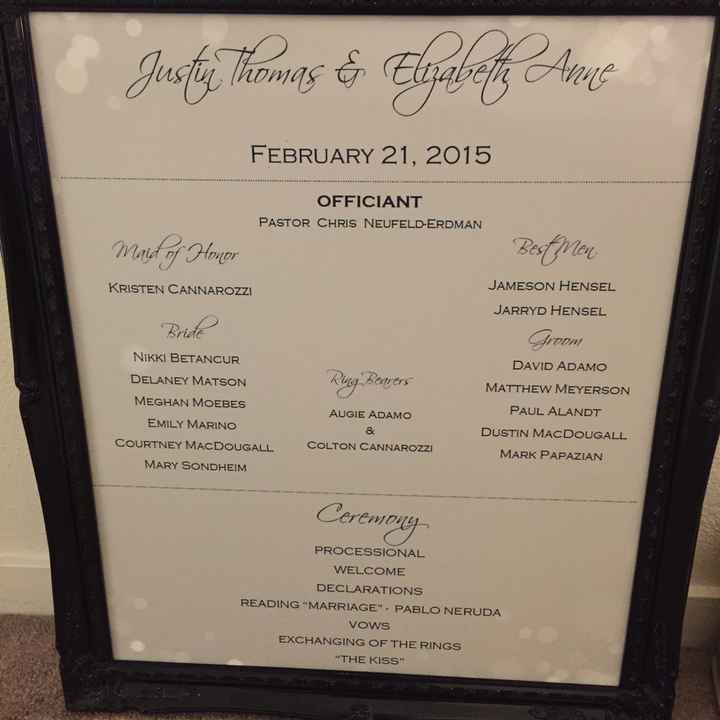 Justin Thomas & Elizabeth Anne
FEBRUARY 21, 2015
OFFICIANT
PASTOR CHRIS NEUFELD-ERDMAN
Maid of Honor
KRISTEN CANNAROZZI
Best Men
JAMESON HENSEL
JARRYD HENSEL
Bride
NIKKI BETANCUR
DELANEY MATSON
MEGHAN MOEBES
EMILY MARINO
COURTNEY MACDOUGALL
MARY SONDHEIM
Ring Bearers
AUGIE ADAMO
&
COLTON CANNAROZZI
Groom
DAVID ADAMO
MATTHEW MEYERSON
PAUL ALANDT
DUSTIN MACDOUGALL
MARK PAPAZIAN
Ceremony
PROCESSIONAL
WELCOME
DECLARATIONS
READING "MARRIAGE" - PABLO NERUDA
VOWS
EXCHANGING OF THE RINGS
"THE KISS"